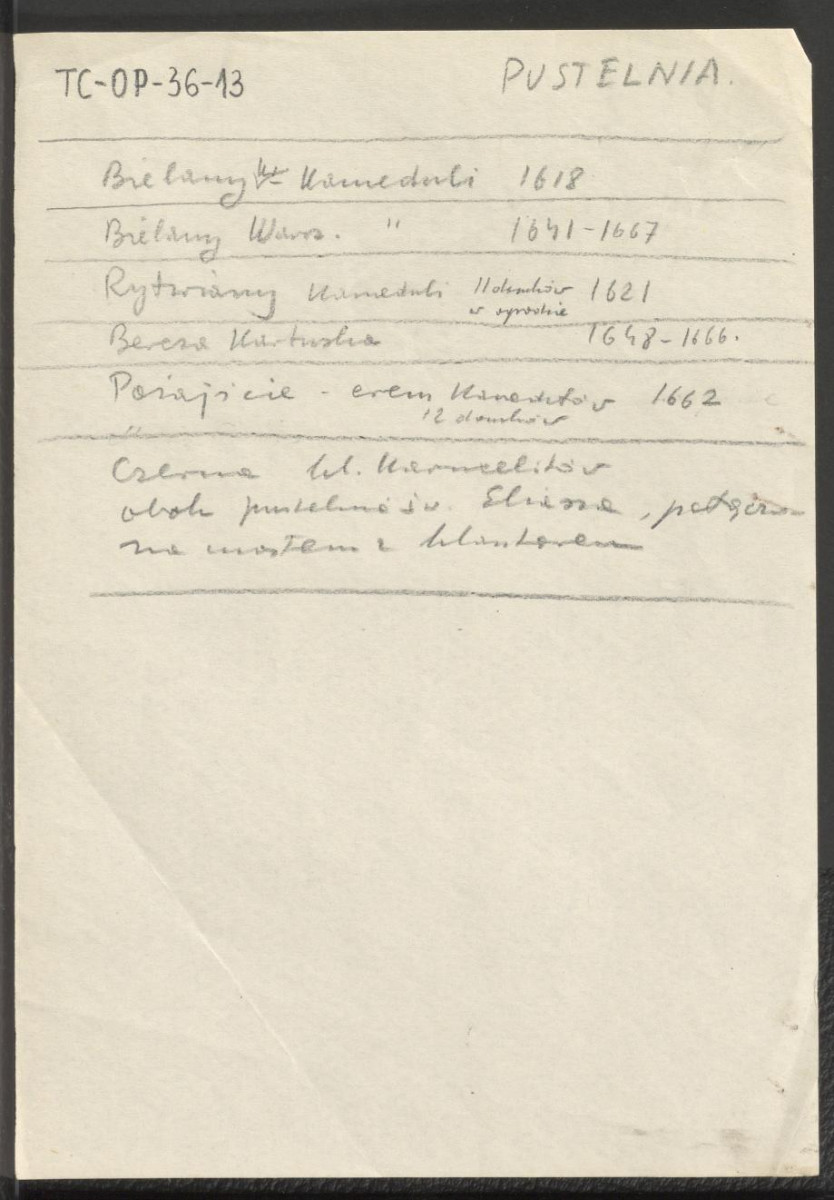 TC-OP-36-13 PUSTELNIA.
Bielany Kr Kameduli 1618
Bielany Warsz. " 1641-1667
Rytwiany Kameduli 11 domków 1621
w ogrodzie
Bereza Kartuska 1648-1666.
Pożajście - erem Kamedułów 1662
" 12 domków
Czerna kl. Karmelitów
obok pustelnia św. Eliasza, połączo-
na mostem z klasztorem